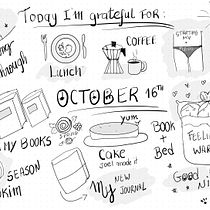 Today I'm grateful for:
Lunch
COFFEE
STARTING
MY
through
OCTOBER 16TH
MY BOOKS
yum
Cake
Joel made it
BOOK
+
Bed
FEELING
WAR
SEASON
My
NEW
JOURNAL
Good